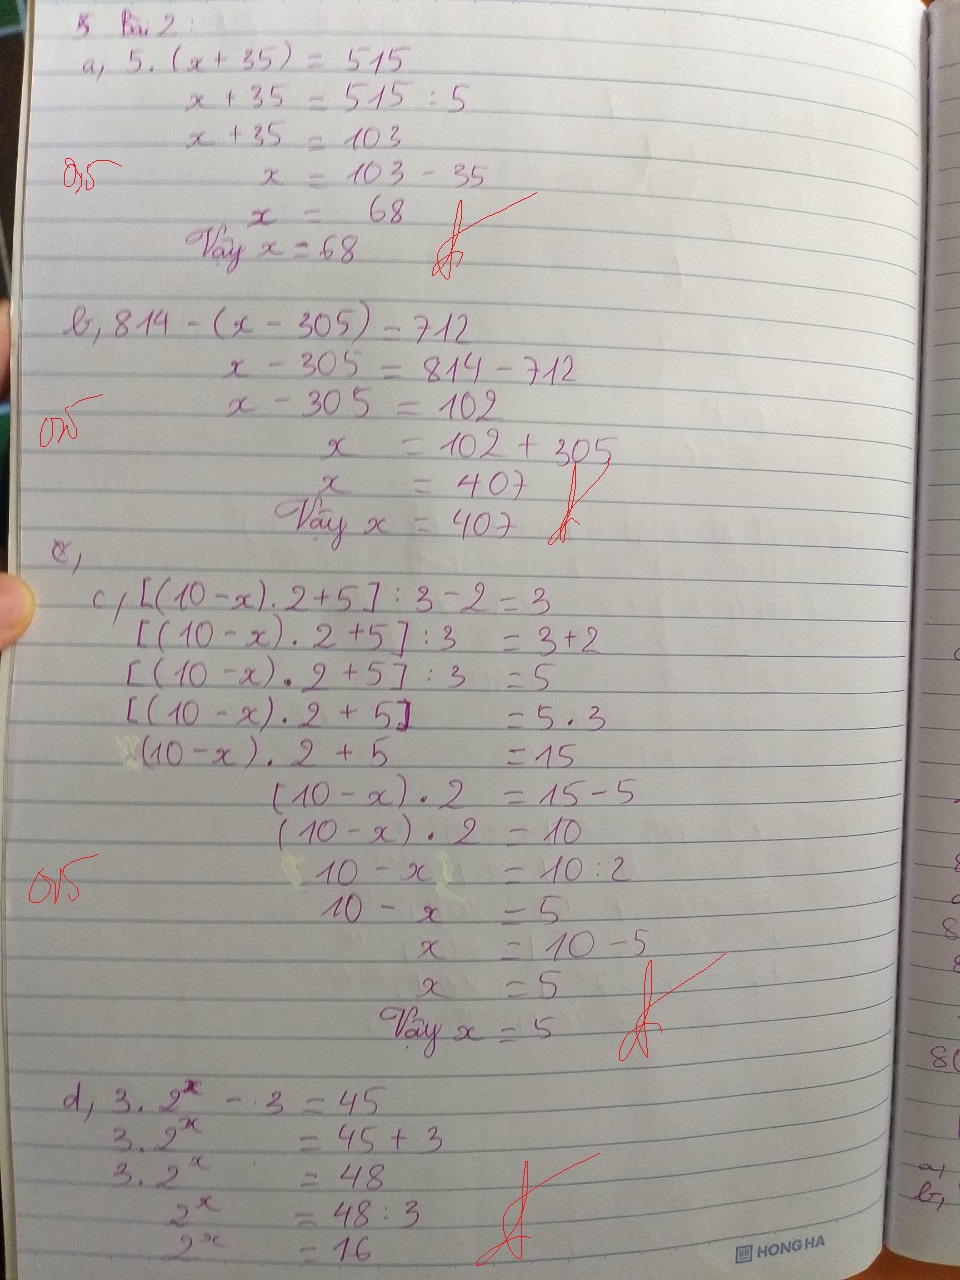 Bài 2:
a, 5. (x + 35) = 515
x + 35 = 515 : 5
x + 35 = 103
0,5
x = 103 - 35
x = 68
Vậy x = 68
b, 814 - (x - 305) = 712
x - 305 = 814 - 712
x - 305 = 102
0,5
x = 102 + 305
x = 407
Vậy x = 407
c, [(10 - x). 2 + 5] : 3 - 2 = 3
[(10 - x). 2 + 5] : 3 = 3 + 2
[(10 - x). 2 + 5] : 3 = 5
[(10 - x). 2 + 5] = 5 . 3
(10 - x). 2 + 5 = 15
(10 - x). 2 = 15 - 5
(10 - x). 2 = 10
0,5
10 - x = 10 : 2
10 - x = 5
x = 10 - 5
x = 5
Vậy x = 5
d, 3. 2^x - 3 = 45
3. 2^x = 45 + 3
3. 2^x = 48
2^x = 48 : 3
2^x = 16
HONG HA
a,
b,